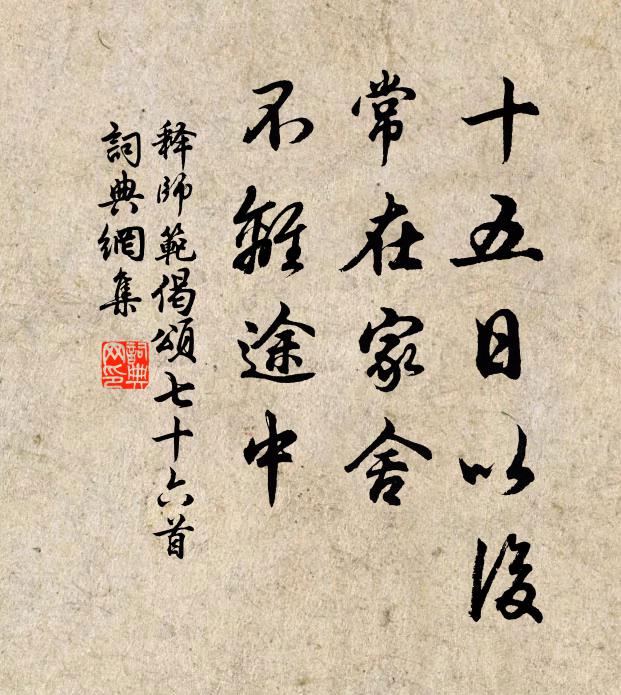 十五日以後
常在家舍
不離途中
释師範偈頌七十六首
詞典網集
詞典網印